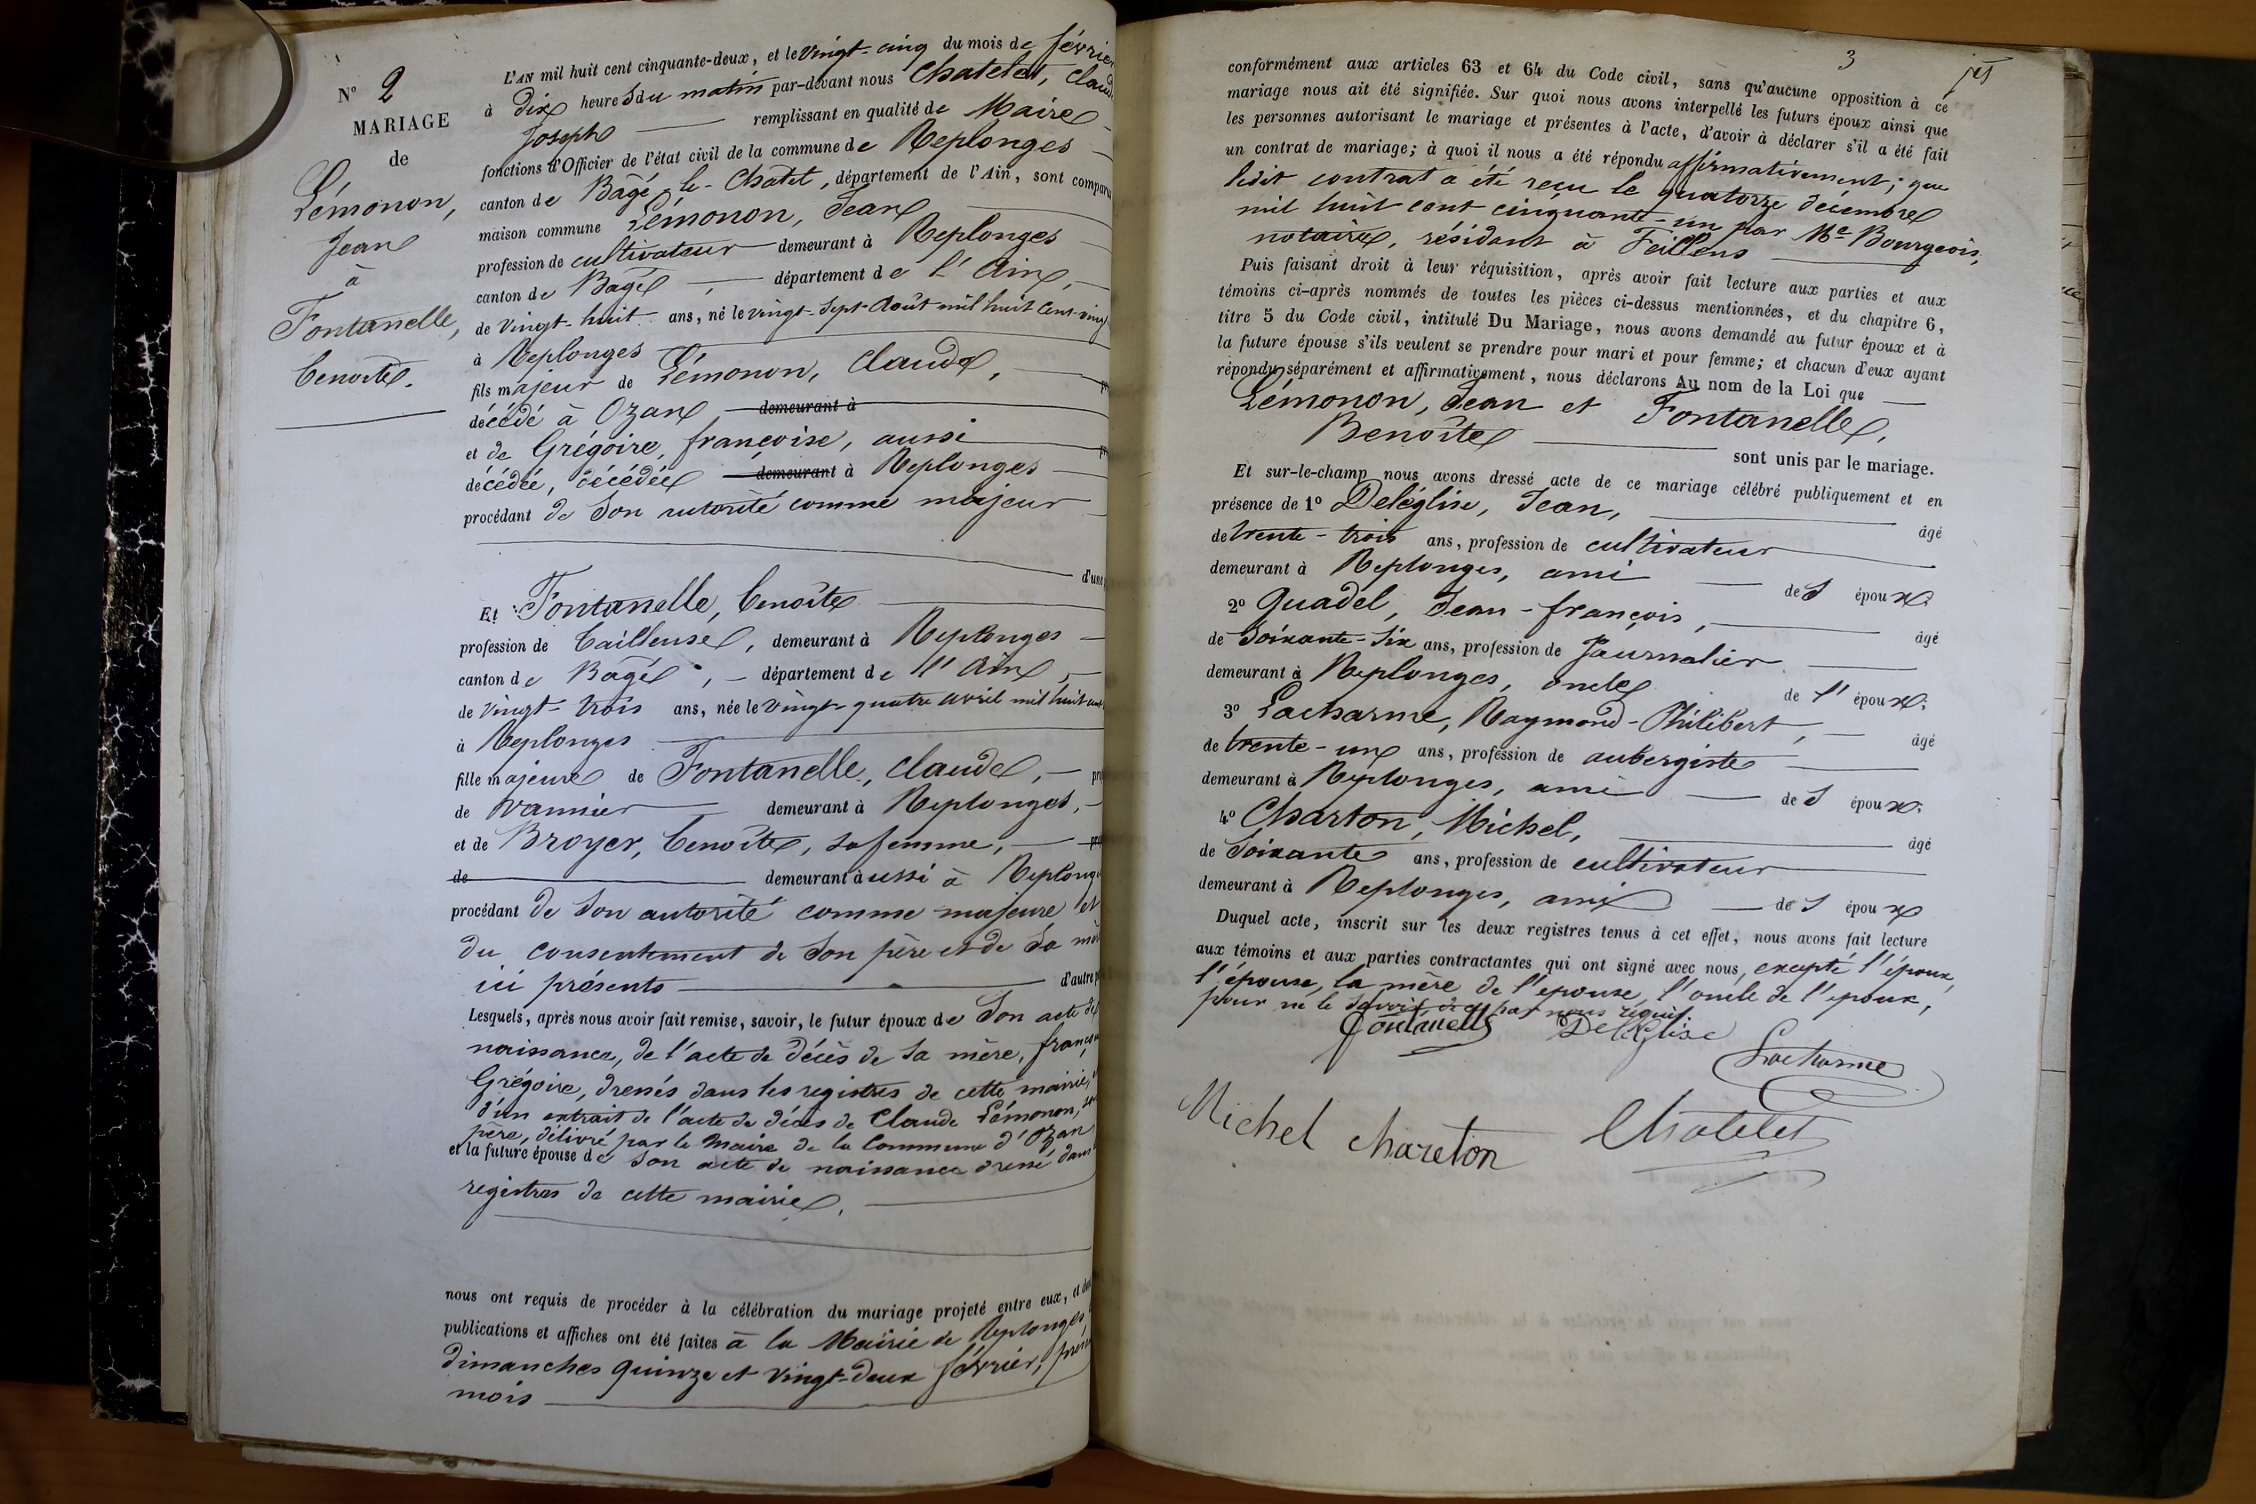 N° 2
MARIAGE
de
Lémonon,
Jean
à
Fontanelle,
benoîte.
L'AN mil huit cent cinquante-deux, et le vingt-cinq du mois de février
à dix heures du matin par-devant nous Chatelet, Claude
Joseph remplissant en qualité de Maire
fonctions d'Officier de l'état civil de la commune de Replonges
canton de Bâgé-le-Chatel, département de l'Ain, sont comparu
maison commune Lémonon, Jean
profession de cultivateur demeurant à Replonges
canton de Bagé, département de l'Ain,
de vingt-huit ans, né le vingt-sept Août mil huit cent vingt
à Replonges
fils majeur de Lémonon, Claude,
décédé à Ozan demeurant à
et de Grégoire, françoise, aussi
décédée, décédée demeurant à Replonges
procédant de son autorité comme majeur
d'une
Et Fontanelle, benoîte
profession de tailleuse, demeurant à Replonges
canton de Bâgé, département de l'Ain,
de vingt-trois ans, née le vingt-quatre avril mil huit cent
à Replonges
fille majeure de Fontanelle, Claude,
de vannier demeurant à Replonges,
et de Broyer, benoîte, sa femme,
de demeurant aussi à Replonges
procédant de son autorité comme majeure et
du consentement de son père et de sa mère
ici présents d'autre
Lesquels, après nous avoir fait remise, savoir, le futur époux de son acte de
naissance, de l'acte de décès de sa mère, françoise
Grégoire, dressés dans les registres de cette mairie,
d'un extrait de l'acte de décès de Claude Lémonon, son
père, délivré par le Maire de la Commune d'Ozan
et la future épouse de son acte de naissance dressé dans
registres de cette mairie.
nous ont requis de procéder à la célébration du mariage projeté entre eux, et dont
publications et affiches ont été faites à la Mairie de Replonges,
dimanches quinze et vingt-deux février, présent
mois
3
conformément aux articles 63 et 64 du Code civil, sans qu'aucune opposition à ce
mariage nous ait été signifiée. Sur quoi nous avons interpellé les futurs époux ainsi que
les personnes autorisant le mariage et présentes à l'acte, d'avoir à déclarer s'il a été fait
un contrat de mariage; à quoi il nous a été répondu affirmativement; que
ledit contrat a été reçu le quatorze décembre
mil huit cent cinquante-un par Me Bourgeois,
notaire, résidant à Feillens
Puis faisant droit à leur réquisition, après avoir fait lecture aux parties et aux
témoins ci-après nommés de toutes les pièces ci-dessus mentionnées, et du chapitre 6,
titre 5 du Code civil, intitulé Du Mariage, nous avons demandé au futur époux et à
la future épouse s'ils veulent se prendre pour mari et pour femme; et chacun d'eux ayant
répondu séparément et affirmativement, nous déclarons Au nom de la Loi que
Lémonon, Jean et Fontanelle,
Benoîte
sont unis par le mariage.
Et sur-le-champ nous avons dressé acte de ce mariage célébré publiquement et en
présence de 1° Deléglise, Jean, âgé
de trente-trois ans, profession de cultivateur
demeurant à Replonges, ami des époux.
2° Quadel, Jean-françois, âgé
de soixante-six ans, profession de Journalier
demeurant à Replonges, oncle de l'époux.
3° Lacharme, Raymond-Philibert, âgé
de trente-un ans, profession de aubergiste
demeurant à Replonges, ami des époux.
4° Charton, Michel, âgé
de soixante ans, profession de cultivateur
demeurant à Replonges, ami des époux
Duquel acte, inscrit sur les deux registres tenus à cet effet, nous avons fait lecture
aux témoins et aux parties contractantes qui ont signé avec nous, excepté l'époux,
l'épouse, la mère de l'epouse, l'oncle de l'epoux,
pour ne le savoir de par nous requis.
Fontanelle Deleglise
Lacharme
Michel chareton Chatelet